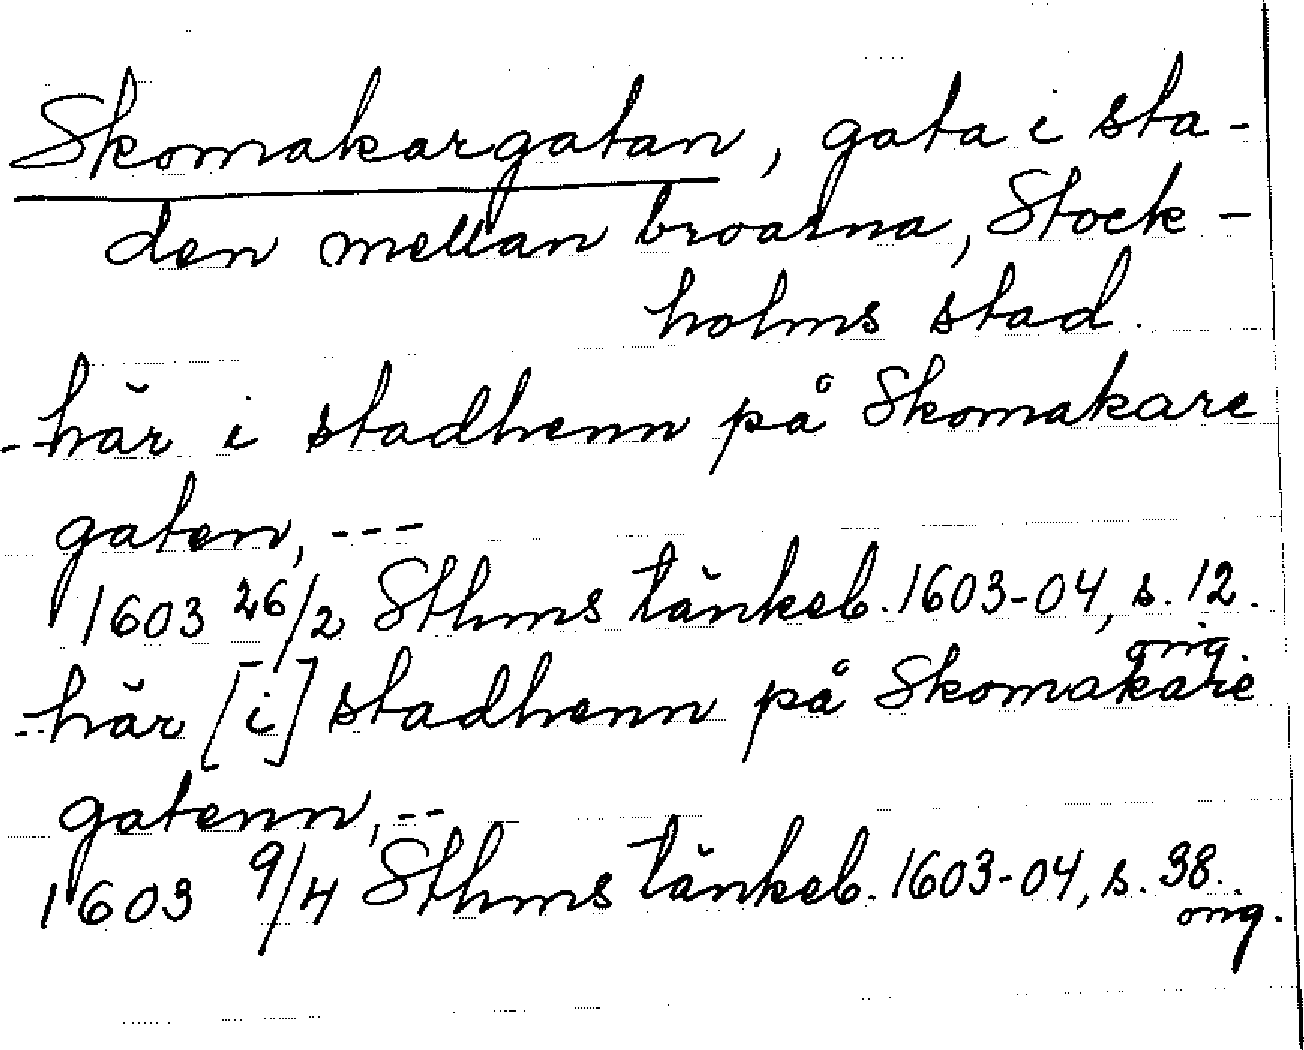 Skomakargatan, gata i sta-
den mellan broarna, Stock-
holms stad.
- här i stadhenn på Skomakare
gaten, ---
1603 26/2 Sthms tänkeb. 1603-04, s. 12.
orig.
- här [i] stadhenn på Skomakare
gatenn, --
1603 9/4 Sthms tänkeb. 1603-04, s. 38.
orig.